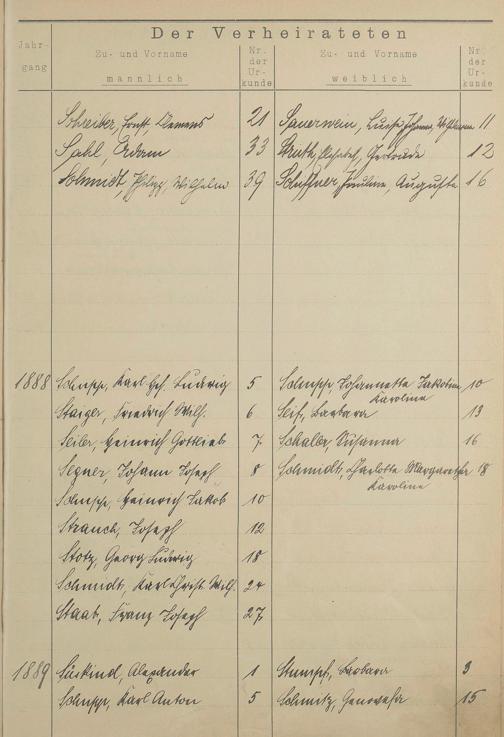 Der Verheirateten
Jahr- Zu- und Vorname Nr. Zu- und Vorname Nr.
gang der der
männlich Ur- weiblich Ur-
kunde kunde
Schreiber, Ernst, Clemens 21 Sauerwein, Johanna, 11
Sahl, Adam 33 Struth, Elisabeth, Gertrude 12
Schmidt, Philipp, Wilhelm 39 Schiffner, Pauline, Auguste 16
1888 Schupp, Karl Ludwig 5 Schupp Johannetta Jakobine 10
Karoline
Staiger, Friedrich Wilh. 6 Seif, Barbara 13
Seiler, Heinrich Gottlieb 7 Schaller, Susanna 16
Segner, Johann Joseph 8 Schmidt, Charlotte Margarethe 18
Karoline
Schupp, Heinrich Jakob 10
Strauch, Joseph 12
Stotz, Georg Ludwig 18
Schmidt, Karl Christ. Wilh. 24
Staab, Franz Joseph 27
1889 Süskind, Alexander 1 Stumpf, Barbara 3
Schupp, Karl Anton 5 Schmitz, Genovefa 15